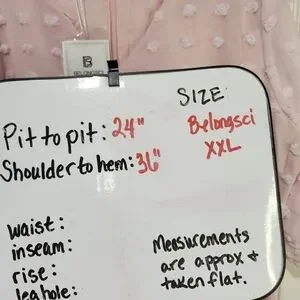 B
BELONGSCI
SIZE:
Belongsci
XXL
Pit to pit: 24"
Shoulder to hem: 36"
waist:
inseam:
rise:
leg hole:
Measurements
are approx +
taken flat.